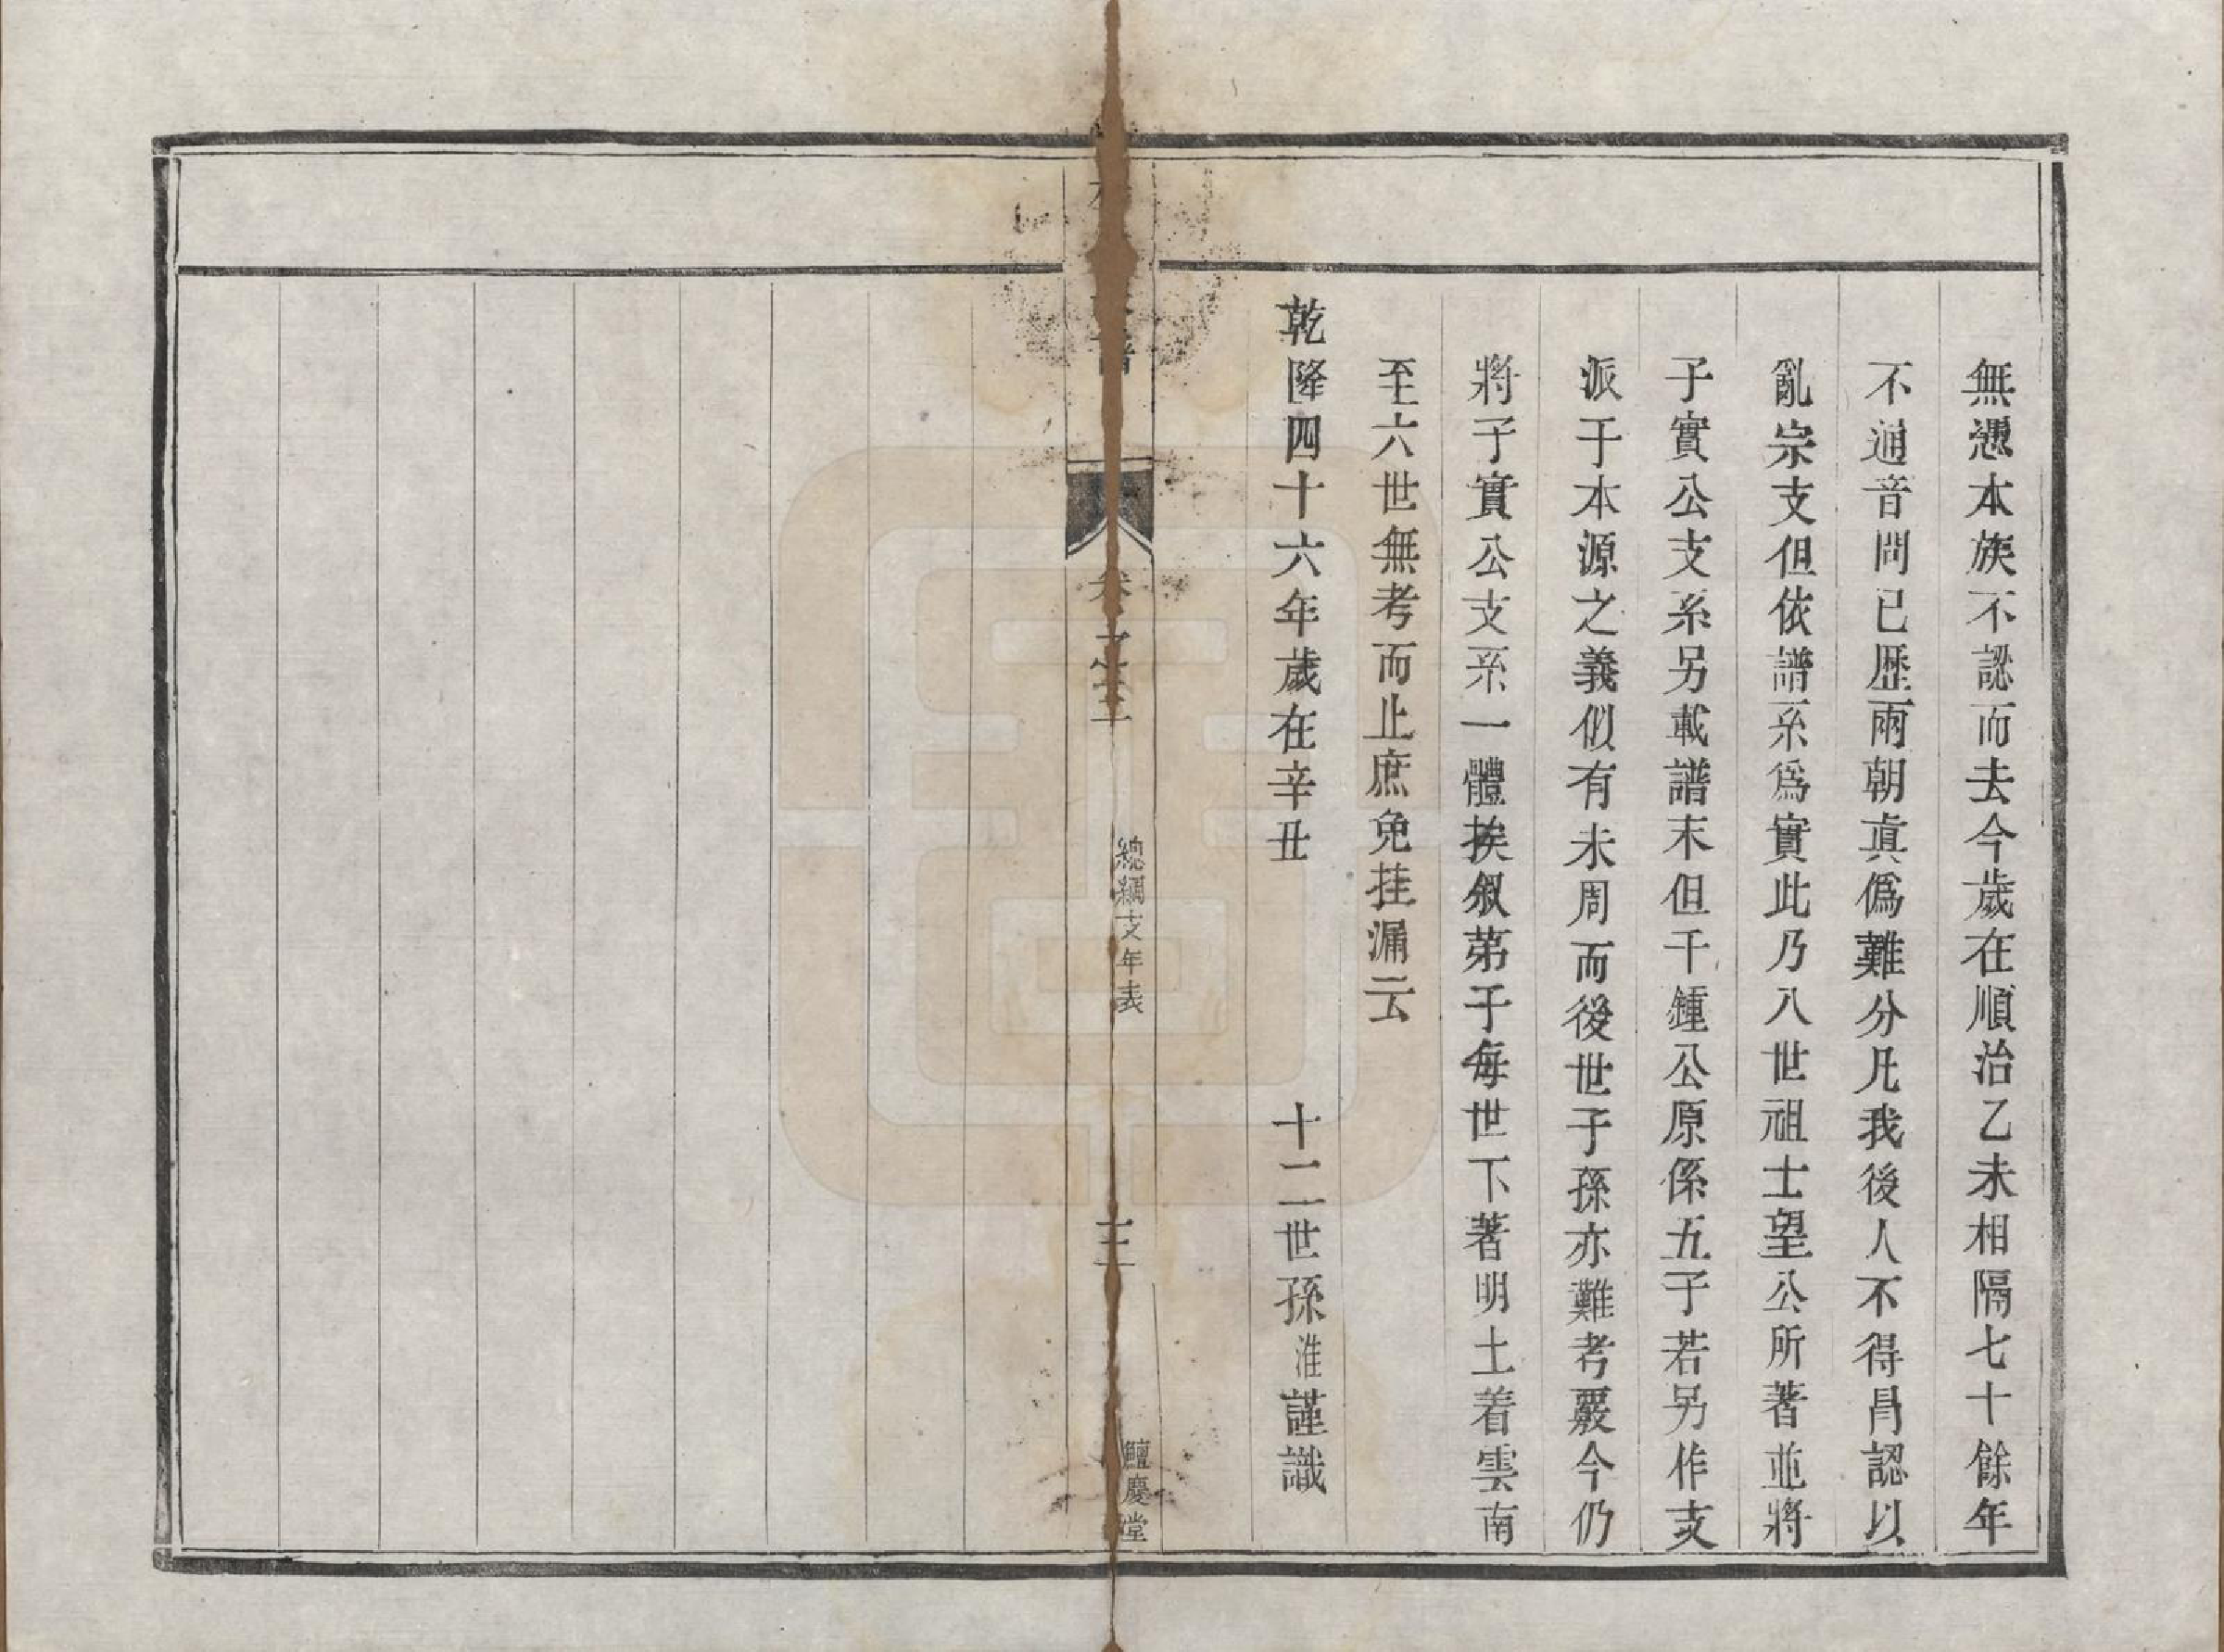 無憑本族不認而去今歲在順治乙未相隔七十餘年
不通音問已歷兩朝真僞難分凡我後人不得冒認以
亂宗支但依譜系爲實此乃八世祖士望公所著並將
子實公支系另載譜末但千鍾公原係五子若另作支
派于本源之義似有未周而後世子孫亦難考覈今仍
將子實公支系一體挨叙第于每世下著明土着雲南
至六世無考而止庶免挂漏云
乾隆四十六年歲在辛丑 十二世孫淮謹識
譜
卷之三
總綱支年表
三
鱣慶堂